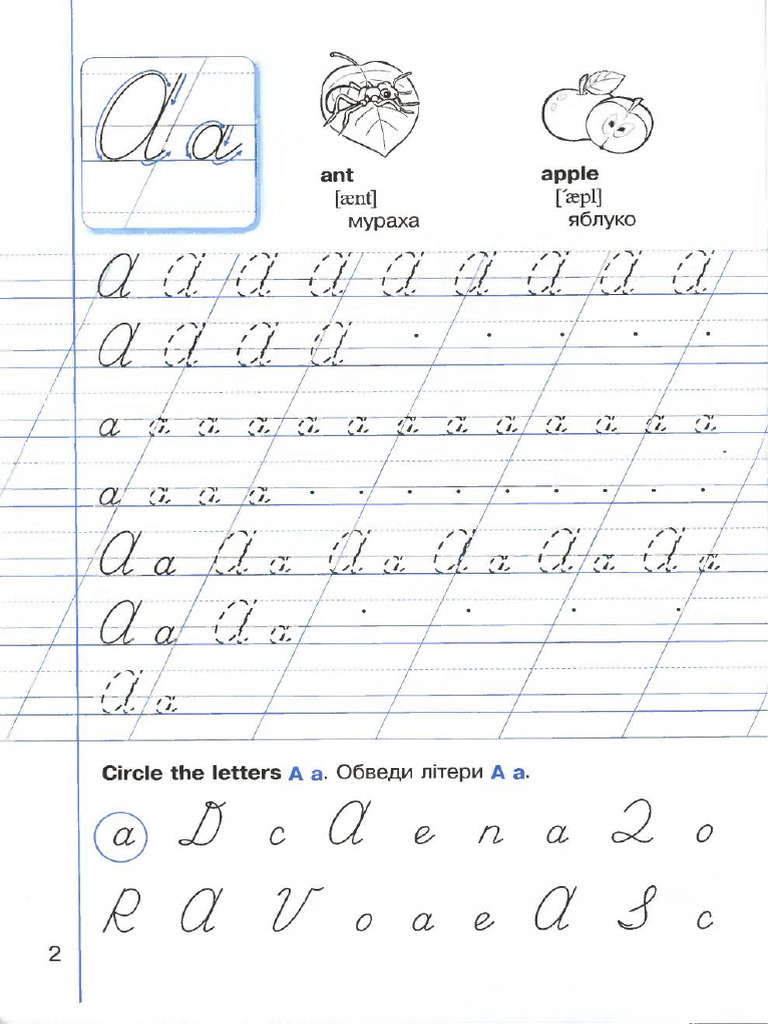 A a
ant
[ænt]
мураха
apple
[´æpl]
яблуко
A A A A A A A A A
A A A A
a a a a a a a a a a a a a
a a a a
A a A a A a A a A a A a
A a A a
A a
Circle the letters A a. Обведи літери A a.
a D c A e n a Q o
R A V o a e A S c
2